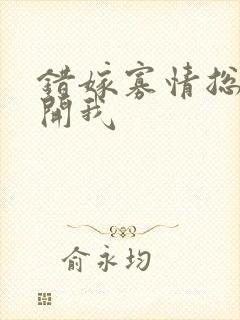 錯嫁寡情総
開我
俞永均